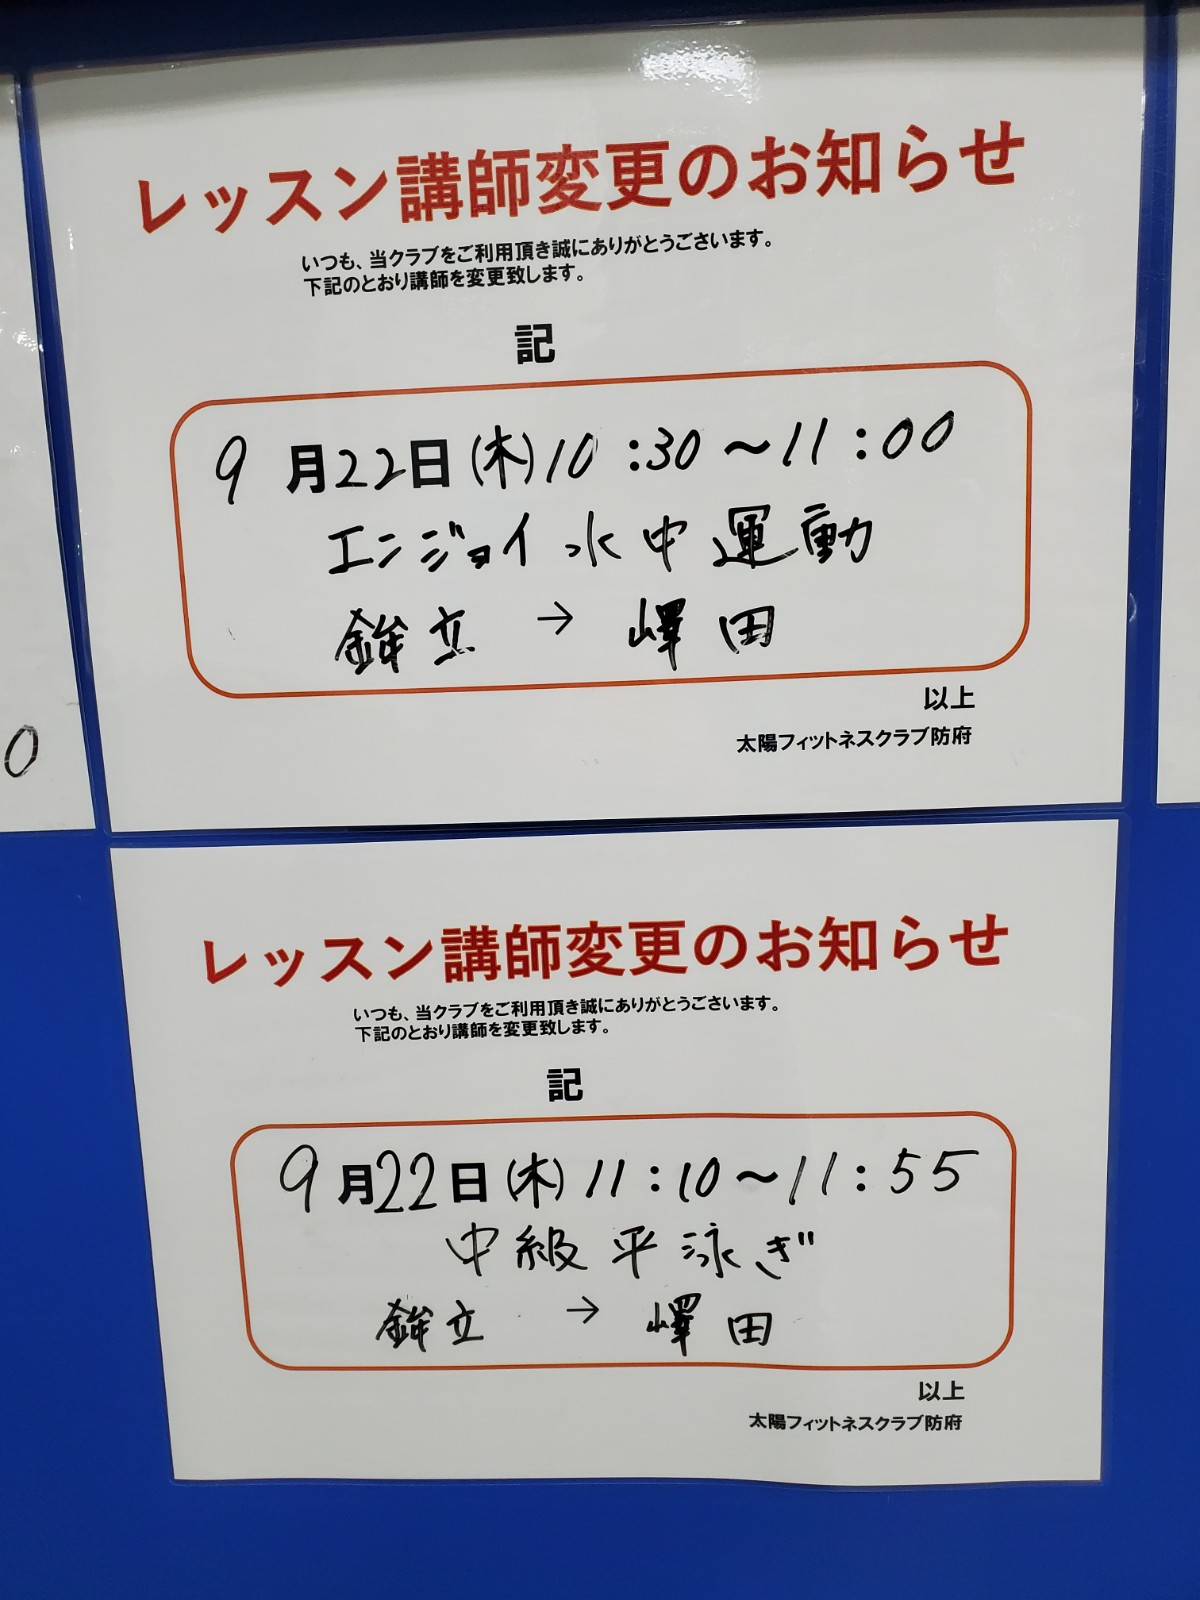 レッスン講師変更のお知らせ
いつも、当クラブをご利用頂き誠にありがとうございます。
下記のとおり講師を変更致します。
記
9月22日(木)10:30～11:00
エンジョイ水中運動
鉾立 → 嶧田
以上
太陽フィットネスクラブ防府
0
レッスン講師変更のお知らせ
いつも、当クラブをご利用頂き誠にありがとうございます。
下記のとおり講師を変更致します。
記
9月22日(木)11:10～11:55
中級平泳ぎ
鉾立 → 嶧田
以上
太陽フィットネスクラブ防府